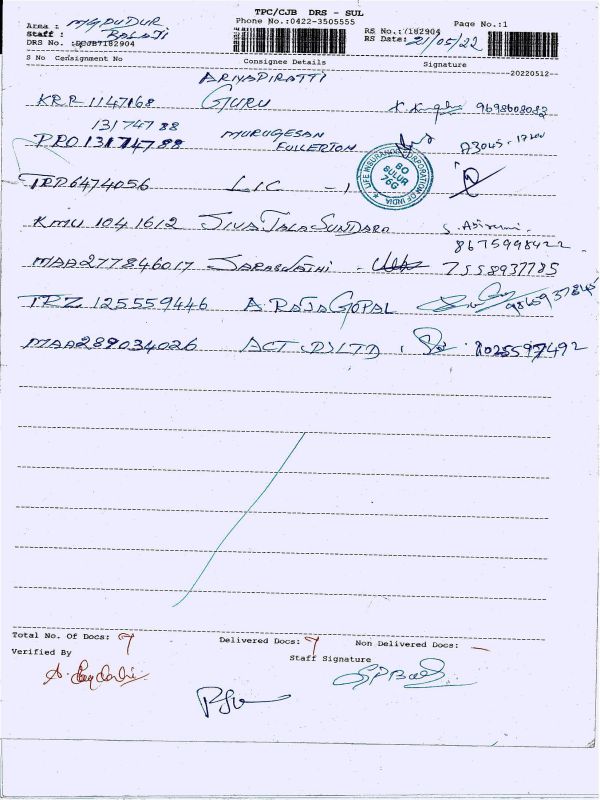 TPC/CJB DRS - SUL
Phone No.:0422-3505555 Page No.:1
Area : MGPUDUR
Staff : BALAJI
RS No.:7182904
DRS No. :DCJB7182904
RS Date: 21/05/22
S No Consignment No Consignee Details Signature
--20220512--
ARIYAPIRATTI
KRR 1147168 GURU 9698608082
131 747 88
PRO 131 747 88 MURUGESAN
FULLERTON A3045 -
LIFE INSURANCE CORPORATION OF INDIA
BO
SULUR
76G
TRP6474056 L I C - 1
KMU 1041612 SIVA JALA SUNDARA
8675998422
MAA277846017 SARASWATHI - 7558937785
TRZ 125559446 A. RAJAGOPAL
MAA289034026 ACT (I) LTD 8025597492
Total No. Of Docs: 7 Delivered Docs: 7 Non Delivered Docs: -
Verified By Staff Signature